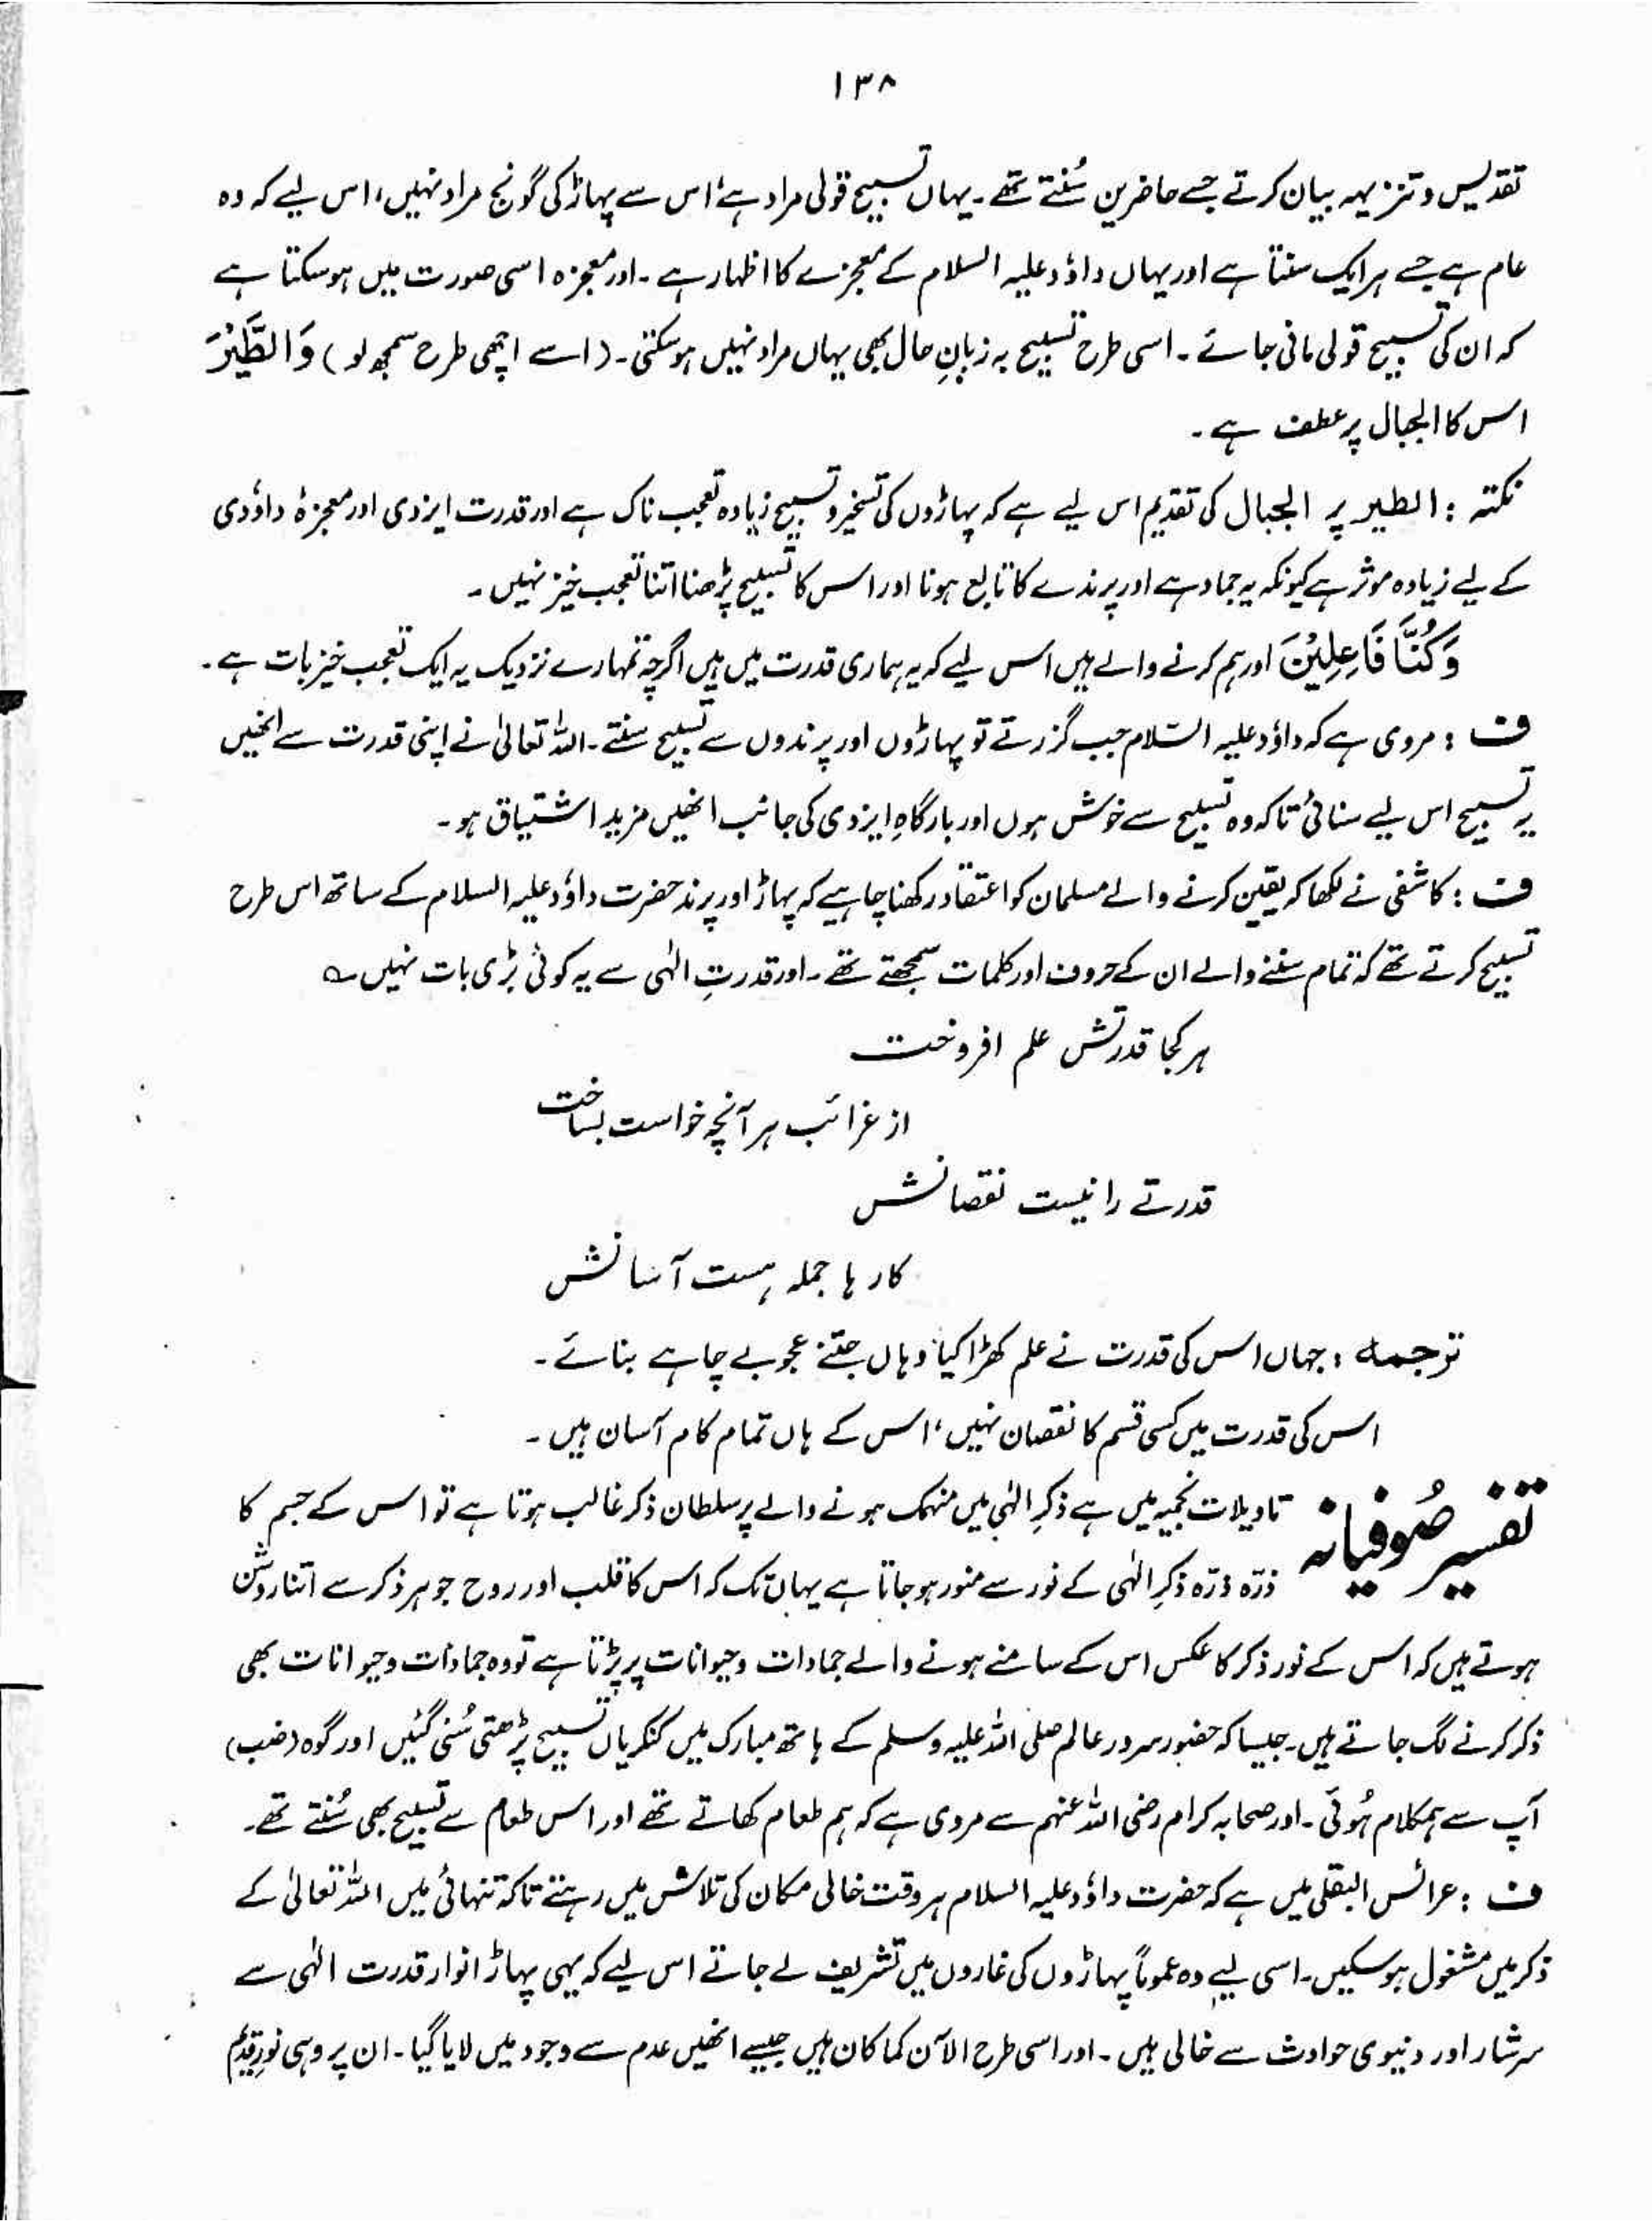 ۱۳۸
تقدیس و تنزیہہ بیان کرتے جسے حاضرین سُنتے تھے۔ یہاں تسبیح قولی مراد ہے، اس سے پہاڑ کی گونج مراد نہیں، اس لیے کہ وہ
عام ہے جسے ہر ایک سنتا ہے اور یہاں داؤد علیہ السلام کے معجزے کا اظہار ہے۔ اور معجزہ اسی صورت میں ہوسکتا ہے
کہ ان کی تسبیح قولی مانی جائے۔ اسی طرح تسبیح بہ زبانِ حال بھی یہاں مراد نہیں ہوسکتی۔ (اسے اچھی طرح سمجھ لو) وَالطَّیْرَ
اس کا الجبال پر عطف ہے۔
نکتہ : الطیر پر الجبال کی تقدیم اس لیے ہے کہ پہاڑوں کی تسخیر و تسبیح زیادہ تعجب ناک ہے اور قدرت ایزدی اور معجزۂ داؤدی
کے لیے زیادہ موثر ہے کیونکہ یہ جماد ہے اور پرندے کا تابع ہونا اور اس کا تسبیح پڑھنا اتنا تعجب خیز نہیں۔
وَکُنَّا فَاعِلِیْنَ اور ہم کرنے والے ہیں اس لیے کہ یہ ہماری قدرت میں ہیں اگرچہ تمہارے نزدیک یہ ایک تعجب خیز بات ہے۔
ف : مروی ہے کہ داؤد علیہ السّلام جب گزرتے تو پہاڑوں اور پرندوں سے تسبیح سنتے۔ اللہ تعالیٰ نے اپنی قدرت سے انھیں
یہ تسبیح اس لیے سنائی تاکہ وہ تسبیح سے خوش ہوں اور بارگاہِ ایزدی کی جانب انھیں مزید اشتیاق ہو۔
ف : کاشفی نے لکھا کہ یقین کرنے والے مسلمان کو اعتقاد رکھنا چاہیے کہ پہاڑ اور پرند حضرت داؤد علیہ السلام کے ساتھ اس طرح
تسبیح کرتے تھے کہ تمام سننے والے ان کے حروف اور کلمات سمجھتے تھے۔ اور قدرتِ الٰہی سے یہ کوئی بڑی بات نہیں ؎
ہر کجا قدرتش علم افروخت
از غرائب ہر آنچہ خواست بساخت
قدرتے را نیست نقصانش
کارہا جملہ ہست آسانش
ترجمہ : جہاں اس کی قدرت نے علم کھڑا کیا وہاں جتنے عجوبے چاہے بنائے۔
اس کی قدرت میں کسی قسم کا نقصان نہیں، اس کے ہاں تمام کام آسان ہیں۔
تفسیر صُوفیانہ تاویلات نجمیہ میں ہے ذکرِ الٰہی میں منہمک ہونے والے پر سلطان ذکر غالب ہوتا ہے تو اس کے جسم کا
ذرّہ ذرّہ ذکرِ الٰہی کے نور سے منور ہو جاتا ہے یہاں تک کہ اس کا قلب اور روح جوہر ذکر سے اتنا روشن
ہوتے ہیں کہ اس کے نور ذکر کا عکس اس کے سامنے ہونے والے جمادات و حیوانات پر پڑتا ہے تو وہ جمادات و حیوانات بھی
ذکر کرنے لگ جاتے ہیں۔ جیسا کہ حضور سرور عالم صلی اللہ علیہ وسلم کے ہاتھ مبارک میں کنکریاں تسبیح پڑھتی سُنی گئیں اور گوہ (ضب)
آپ سے ہمکلام ہُوئی۔ اور صحابہ کرام رضی اللہ عنہم سے مروی ہے کہ ہم طعام کھاتے تھے اور اس طعام سے تسبیح بھی سُنتے تھے۔
ف : عرائس البقلی میں ہے کہ حضرت داؤد علیہ السلام ہر وقت خالی مکان کی تلاش میں رہتے تاکہ تنہائی میں اللہ تعالیٰ کے
ذکر میں مشغول ہو سکیں۔ اسی لیے وہ عموماً پہاڑوں کی غاروں میں تشریف لے جاتے اس لیے کہ یہی پہاڑ انوار قدرت الٰہی سے
سرشار اور دنیوی حوادث سے خالی ہیں۔ اور اسی طرح الآن کما کان ہیں جیسے انھیں عدم سے وجود میں لایا گیا۔ ان پر وہی نورِ قدیم